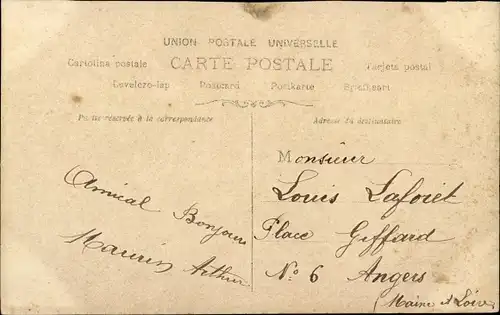 UNION POSTALE UNIVERSELLE
CARTE POSTALE
Cartolina postale Tarjeta postal
Levelezo-lap Postcard Postkarte Briefkaart
Partie réservée à la correspondance
Adresse du destinataire
Amical Bonjour
Arthur
Monsieur
Louis Laforêt
Place Giffard
N° 6 Angers
(Maine et Loire)